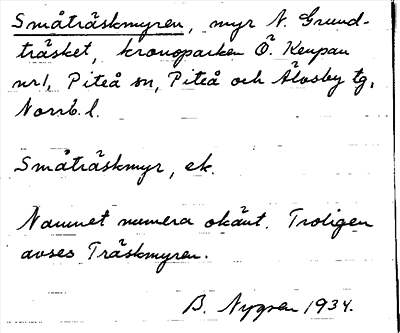 Småträskmyren, myr N. Grund-
träsket, kronoparken Ö. Kenpau
nr 1, Piteå sn, Piteå och Älvsby tg,
Norrb. l.
Småträskmyr, ek.
Namnet numera okänt. Troligen
avses Träskmyren.
B. Nygren 1934.